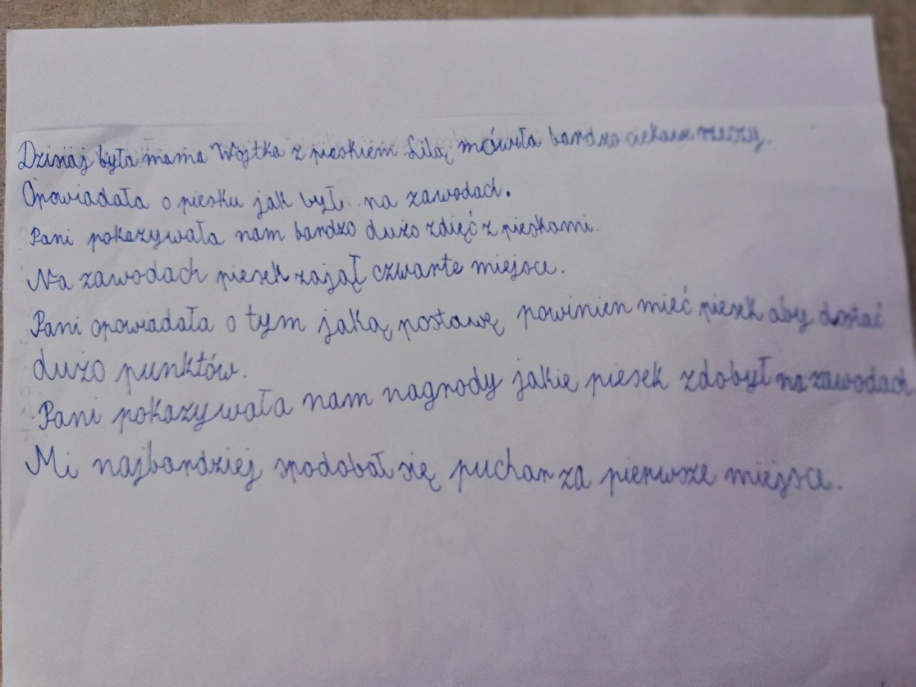 Dzisiaj była mama Wojtka z pieskiem Lilą mówiła bardzo ciekawe rzeczy.
Opowiadała o piesku jak był na zawodach.
Pani pokazywała nam bardzo dużo zdięć z pieskami.
Na zawodach piesek zajął czwarte miejsce.
Pani opowiadała o tym jaką postawę powinien mieć piesek aby dostać
dużo punktów.
Pani pokazywała nam nagrody jakie piesek zdobył na zawodach
Mi najbardziej spodobał się puchar za pierwsze miejsce.